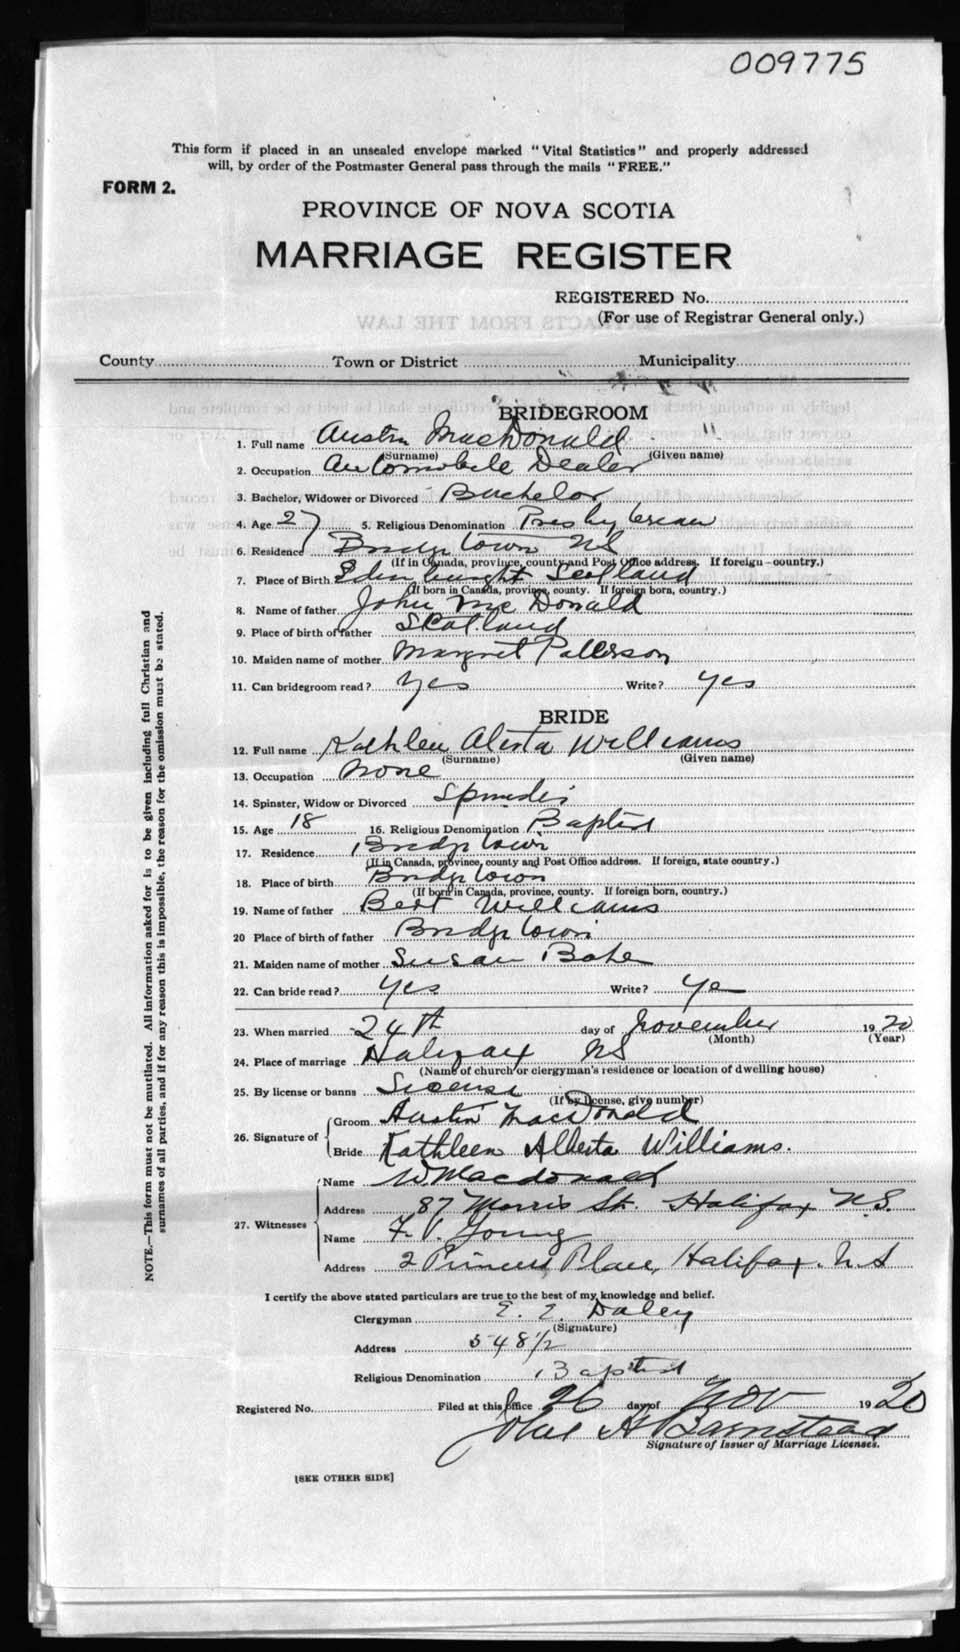 009775
This form if placed in an unsealed envelope marked "Vital Statistics" and properly addressed
will, by order of the Postmaster General pass through the mails "FREE."
FORM 2.
PROVINCE OF NOVA SCOTIA
MARRIAGE REGISTER
REGISTERED No.
(For use of Registrar General only.)
EXTRACTS FROM THE LAW
County Town or District Municipality
BRIDEGROOM
1. Full name Austin MacDonald "
(Surname) (Given name)
2. Occupation Automobile Dealer
3. Bachelor, Widower or Divorced Bachelor
4. Age 27 5. Religious Denomination Presbyterian
6. Residence Bridgetown NS
(If in Canada, province, county and Post Office address. If foreign—country.)
7. Place of Birth Edinburght Scotland
(If born in Canada, province, county. If foreign born, country.)
8. Name of father John McDonald
9. Place of birth of father Scotland
10. Maiden name of mother Margret Patterson
11. Can bridegroom read? Yes Write? Yes
BRIDE
12. Full name Kathleen Alerta Williams
(Surname) (Given name)
13. Occupation None
14. Spinster, Widow or Divorced Spinster
15. Age 18 16. Religious Denomination Baptist
17. Residence Bridgetown
(If in Canada, province, county and Post Office address. If foreign, state country.)
18. Place of birth Bridgetown
(If born in Canada, province, county. If foreign born, country.)
19. Name of father Bert Williams
20 Place of birth of father Bridgetown
21. Maiden name of mother Susan
22. Can bride read? Yes Write? Ye
23. When married 24th day of November 1920
(Month) (Year)
24. Place of marriage Halifax NS
(Name of church or clergyman's residence or location of dwelling house)
25. By license or banns License
(If by license, give number)
26. Signature of Groom Austin MacDonald
Bride Kathleen Alberta Williams.
27. Witnesses Name W Macdonald
Address 87 Morris St. Halifax N.S.
Name F. V. Young
Address 2 Princess Place, Halifax. N.S
I certify the above stated particulars are true to the best of my knowledge and belief.
Clergyman E. E. Daley
(Signature)
Address 548 1/2
Religious Denomination Baptist
Registered No. Filed at this office 26 day of Nov 1920
John A Barnstead
Signature of Issuer of Marriage Licenses.
[SEE OTHER SIDE]
NOTE.—This form must not be mutilated. All information asked for is to be given including full Christian and
surnames of all parties, and if for any reason this is impossible, the reason for the omission must be stated.